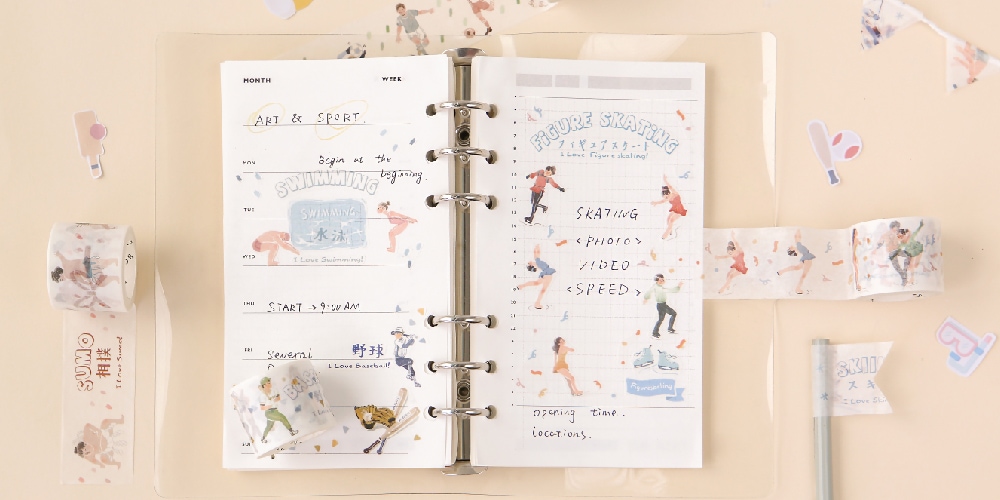 MONTH
WEEK
ART & SPORT.
MON
Begin at the
beginning.
SWIMMING
TUE
SWIMMING
水泳
WED
I Love Swimming!
THU
START → 9:00 AM
FRI
Several
野球
I Love Baseball!
FIGURE SKATING
フィギュアスケート
I Love Figure skating!
SKATING
<PHOTO>
VIDEO
<SPEED>
Figure skating
opening time.
locations.
SUMO
相撲
I Love Sumo!
SKII
スキ
I Love